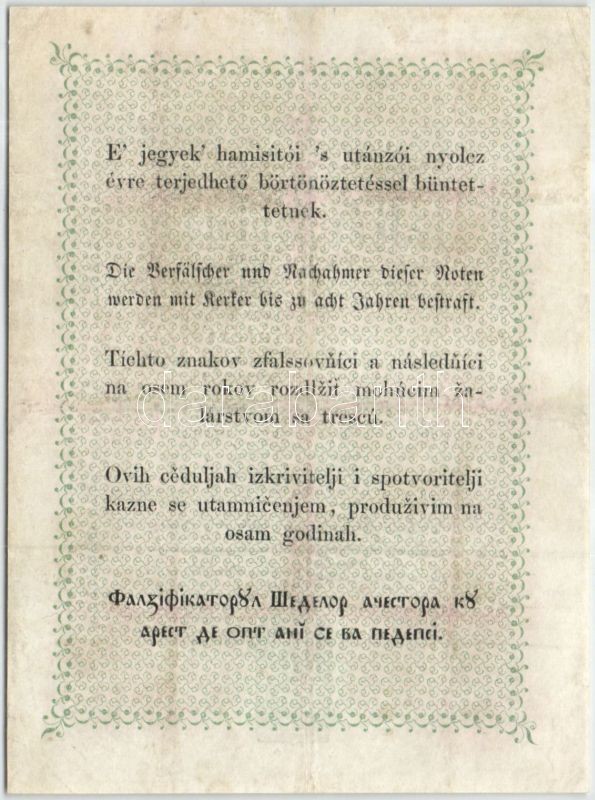 E' jegyek' hamisitói 's utánzói nyolcz
évre terjedhető börtönöztetéssel büntet-
tetnek.
Die Verfälscher und Nachahmer dieser Noten
werden mit Kerker bis zu acht Jahren bestraft.
Tíchto znakov zfalssovňíci a následňíci
na osem rokov rozdlžiť mohúcim ža-
lárstvom sa trescú.
Ovih cěduljah izkrivitelji i spotvoritelji
kazne se utamničenjem, produživim na
osam godinah.
Фалꙁіфікаторꙋл Шеделор ачестора кꙋ
арест де опт анї се ва педепсі.